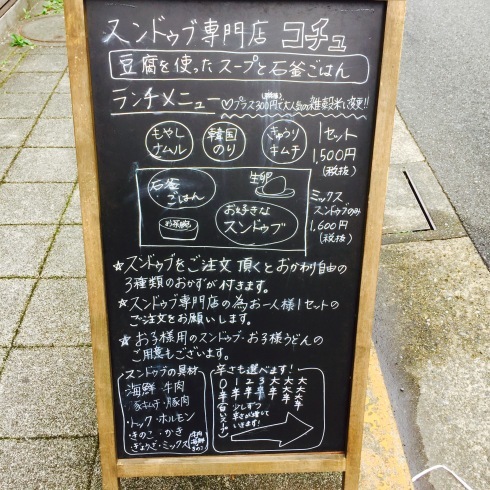 スンドゥブ専門店 コチュ
豆腐を使ったスープと石釜ごはん
ランチメニュー
♡プラス300円で大人気の雑穀米に変更!!
(税抜)
もやし
ナムル
韓国
のり
きゅうり
キムチ
1セット
1,500円
(税抜)
石釜
ごはん
生卵
お茶碗
お好きな
スンドゥブ
ミックス
スンドゥブのみ
1,600円
(税抜)
★スンドゥブをご注文頂くとおかわり自由の
3種類のおかずが付きます。
★スンドゥブ専門店の為お一人様1セットの
ご注文をお願いします。
★お子様用のスンドゥブ・お子様うどんの
ご用意もございます。
スンドゥブの具材
海鮮・牛肉
・豚キムチ・豚肉
・トック・ホルモン
・きのこ・かき
・ぎょうざ・ミックス
辛さも選べます!
0 1 2 3 大 大 大
辛 辛 辛 辛 辛 大 大
少しずつ
辛さが増して
いきます!